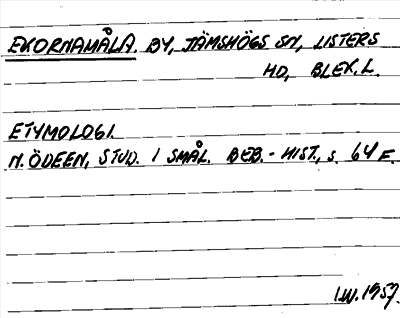 EKORNAMÅLA BY, JÄMSHÖGS SN, LISTERS
HD, BLEK. L.
ETYMOLOGI.
N. ÖDEEN, STUD. I SMÅL. BEB.-HIST., S. 64 F.
I.W. 1957.